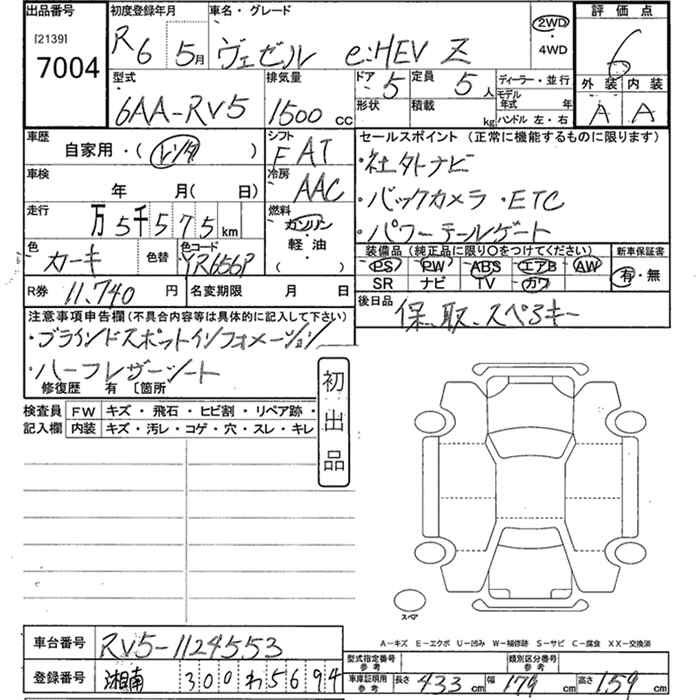 出品番号 初度登録年月 車名・グレード 評価点
[2139] 7004 R6 5月 ヴェゼル e:HEV Z 2WD ・4WD 6
型式 排気量 ドア 5 定員 5人 ディーラー・並行 外装 内装
6AA-RV5 1500 cc 形状 積載 kg モデル年式 年 ハンドル 左・右 A A
車歴 シフト セールスポイント (正常に機能するものに限ります)
自家用・(レンタ) FAT ・社外ナビ
車検 年 月( 日) 冷房 AAC ・バックカメラ・ETC
走行 万5千575km 燃料 ガソリン ・パワーテールゲート
色 カーキ 色替 色コード YR656P 軽・油 ( )
装備品 (純正品に限り○をつけてください) 新車保証書
PS PW ABS エアB AW 有・無
SR ナビ TV カワ
R券 11,740円 名変期限 月 日 後日品 保、取、スペアキー
注意事項申告欄(不具合内容等は具体的に記入して下さい)
・ブラインドスポットインフォメーション
・ハーフレザーシート
修復歴 有 〔箇所
初出品
検査員 FW キズ・飛石・ヒビ割・リペア跡・
記入欄 内装 キズ・汚レ・コゲ・穴・スレ・キレ
スペア
A-キズ E-エクボ U-凹み W-補修跡 S-サビ C-腐食 XX-交換済
車台番号 RV5-1124553 型式指定番号 参考 類別区分番号 参考
登録番号 湘南 300 わ 5694 車庫証明用 参考 長さ 433cm 幅 179cm 高さ 159cm